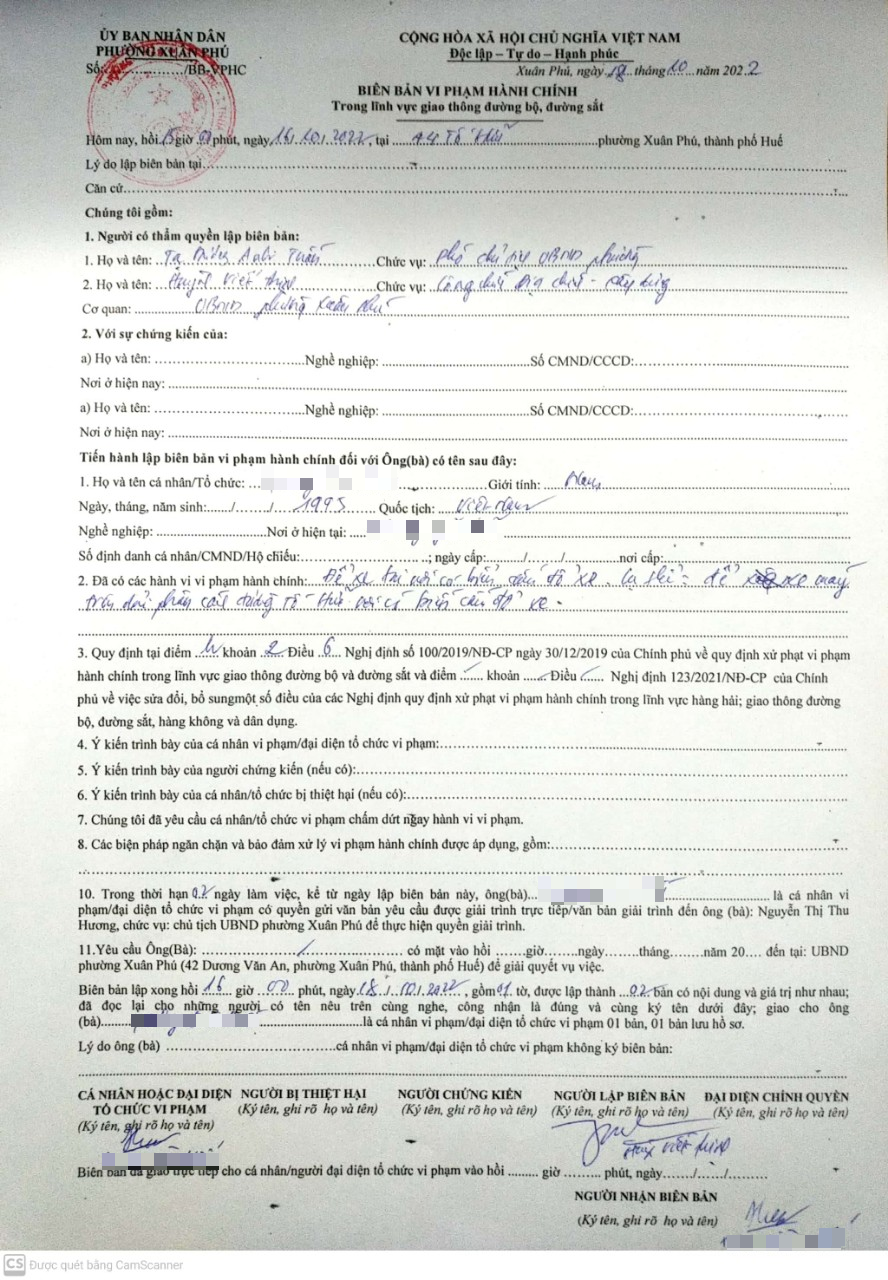 ỦY BAN NHÂN DÂN
PHƯỜNG XUÂN PHÚ
Số: /BB-VPHC
CỘNG HÒA XÃ HỘI CHỦ NGHĨA VIỆT NAM
Độc lập – Tự do – Hạnh phúc
Xuân Phú, ngày 18 tháng 10 năm 2022
BIÊN BẢN VI PHẠM HÀNH CHÍNH
Trong lĩnh vực giao thông đường bộ, đường sắt
Hôm nay, hồi 15 giờ phút, ngày 10/2022, tại Tố Hữu phường Xuân Phú, thành phố Huế
Lý do lập biên bản tại
Căn cứ
Chúng tôi gồm:
1. Người có thẩm quyền lập biên bản:
1. Họ và tên: Anh Tuấn Chức vụ: Phó chủ tịch UBND phường
2. Họ và tên: Huỳnh Viết Chức vụ: Công chức Địa chính - xây dựng
Cơ quan: UBND phường Xuân Phú
2. Với sự chứng kiến của:
a) Họ và tên: Nghề nghiệp: Số CMND/CCCD:
Nơi ở hiện nay:
a) Họ và tên: Nghề nghiệp: Số CMND/CCCD:
Nơi ở hiện nay:
Tiến hành lập biên bản vi phạm hành chính đối với Ông(bà) có tên sau đây:
1. Họ và tên cá nhân/Tổ chức: Giới tính: Nam
Ngày, tháng, năm sinh: / / 1995 Quốc tịch: Việt Nam
Nghề nghiệp: Nơi ở hiện tại:
Số định danh cá nhân/CMND/Hộ chiếu: ; ngày cấp: / / nơi cấp:
2. Đã có các hành vi vi phạm hành chính: Để xe tại nơi có biển cấm đỗ xe. Cụ thể: để xe máy
trên dải phân cách đường Tố Hữu nơi có biển cấm đỗ xe.
3. Quy định tại điểm h khoản 2 Điều 6 Nghị định số 100/2019/NĐ-CP ngày 30/12/2019 của Chính phủ về quy định xử phạt vi phạm
hành chính trong lĩnh vực giao thông đường bộ và đường sắt và điểm / khoản / Điều / Nghị định 123/2021/NĐ-CP của Chính
phủ về việc sửa đổi, bổ sungmột số điều của các Nghị định quy định xử phạt vi phạm hành chính trong lĩnh vực hàng hải; giao thông đường
bộ, đường sắt, hàng không và dân dụng.
4. Ý kiến trình bày của cá nhân vi phạm/đại diện tổ chức vi phạm:
5. Ý kiến trình bày của người chứng kiến (nếu có):
6. Ý kiến trình bày của cá nhân/tổ chức bị thiệt hại (nếu có):
7. Chúng tôi đã yêu cầu cá nhân/tổ chức vi phạm chấm dứt ngay hành vi vi phạm.
8. Các biện pháp ngăn chặn và bảo đảm xử lý vi phạm hành chính được áp dụng, gồm:
10. Trong thời hạn 02 ngày làm việc, kể từ ngày lập biên bản này, ông(bà) là cá nhân vi
phạm/đại diện tổ chức vi phạm có quyền gửi văn bản yêu cầu được giải trình trực tiếp/văn bản giải trình đến ông (bà): Nguyễn Thị Thu
Hương, chức vụ: chủ tịch UBND phường Xuân Phú để thực hiện quyền giải trình.
11.Yêu cầu Ông(Bà): / có mặt vào hồi giờ ngày tháng năm 20 đến tại: UBND
phường Xuân Phú (42 Dương Văn An, phường Xuân Phú, thành phố Huế) để giải quyết vụ việc.
Biên bản lập xong hồi 16 giờ 00 phút, ngày 18/10/2022, gồm 01 tờ, được lập thành 02 bản có nội dung và giá trị như nhau;
đã đọc lại cho những người có tên nêu trên cùng nghe, công nhận là đúng và cùng ký tên dưới đây; giao cho ông
(bà) là cá nhân vi phạm/đại diện tổ chức vi phạm 01 bản, 01 bản lưu hồ sơ.
Lý do ông (bà) cá nhân vi phạm/đại diện tổ chức vi phạm không ký biên bản:
CÁ NHÂN HOẶC ĐẠI DIỆN TỔ CHỨC VI PHẠM
(Ký tên, ghi rõ họ và tên)
NGƯỜI BỊ THIỆT HẠI
(Ký tên, ghi rõ họ và tên)
NGƯỜI CHỨNG KIẾN
(Ký tên, ghi rõ họ và tên)
NGƯỜI LẬP BIÊN BẢN
(Ký tên, ghi rõ họ và tên)
ĐẠI DIỆN CHÍNH QUYỀN
(Ký tên, ghi rõ họ và tên)
Biên bản đã giao trực tiếp cho cá nhân/người đại diện tổ chức vi phạm vào hồi giờ phút, ngày / /
NGƯỜI NHẬN BIÊN BẢN
(Ký tên, ghi rõ họ và tên)
CS Được quét bằng CamScanner